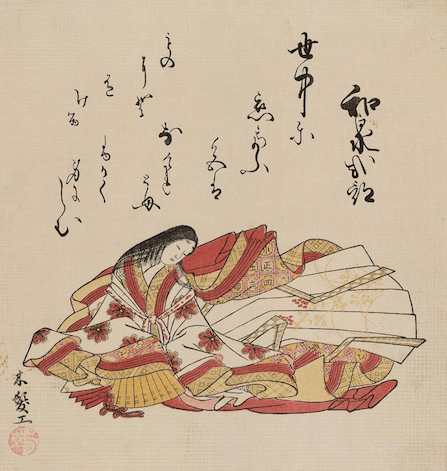 和泉式部
世中尓
恋といふ
色は
なけれ
とも
ふかく
身にしむ
もの
にそ
有
ける